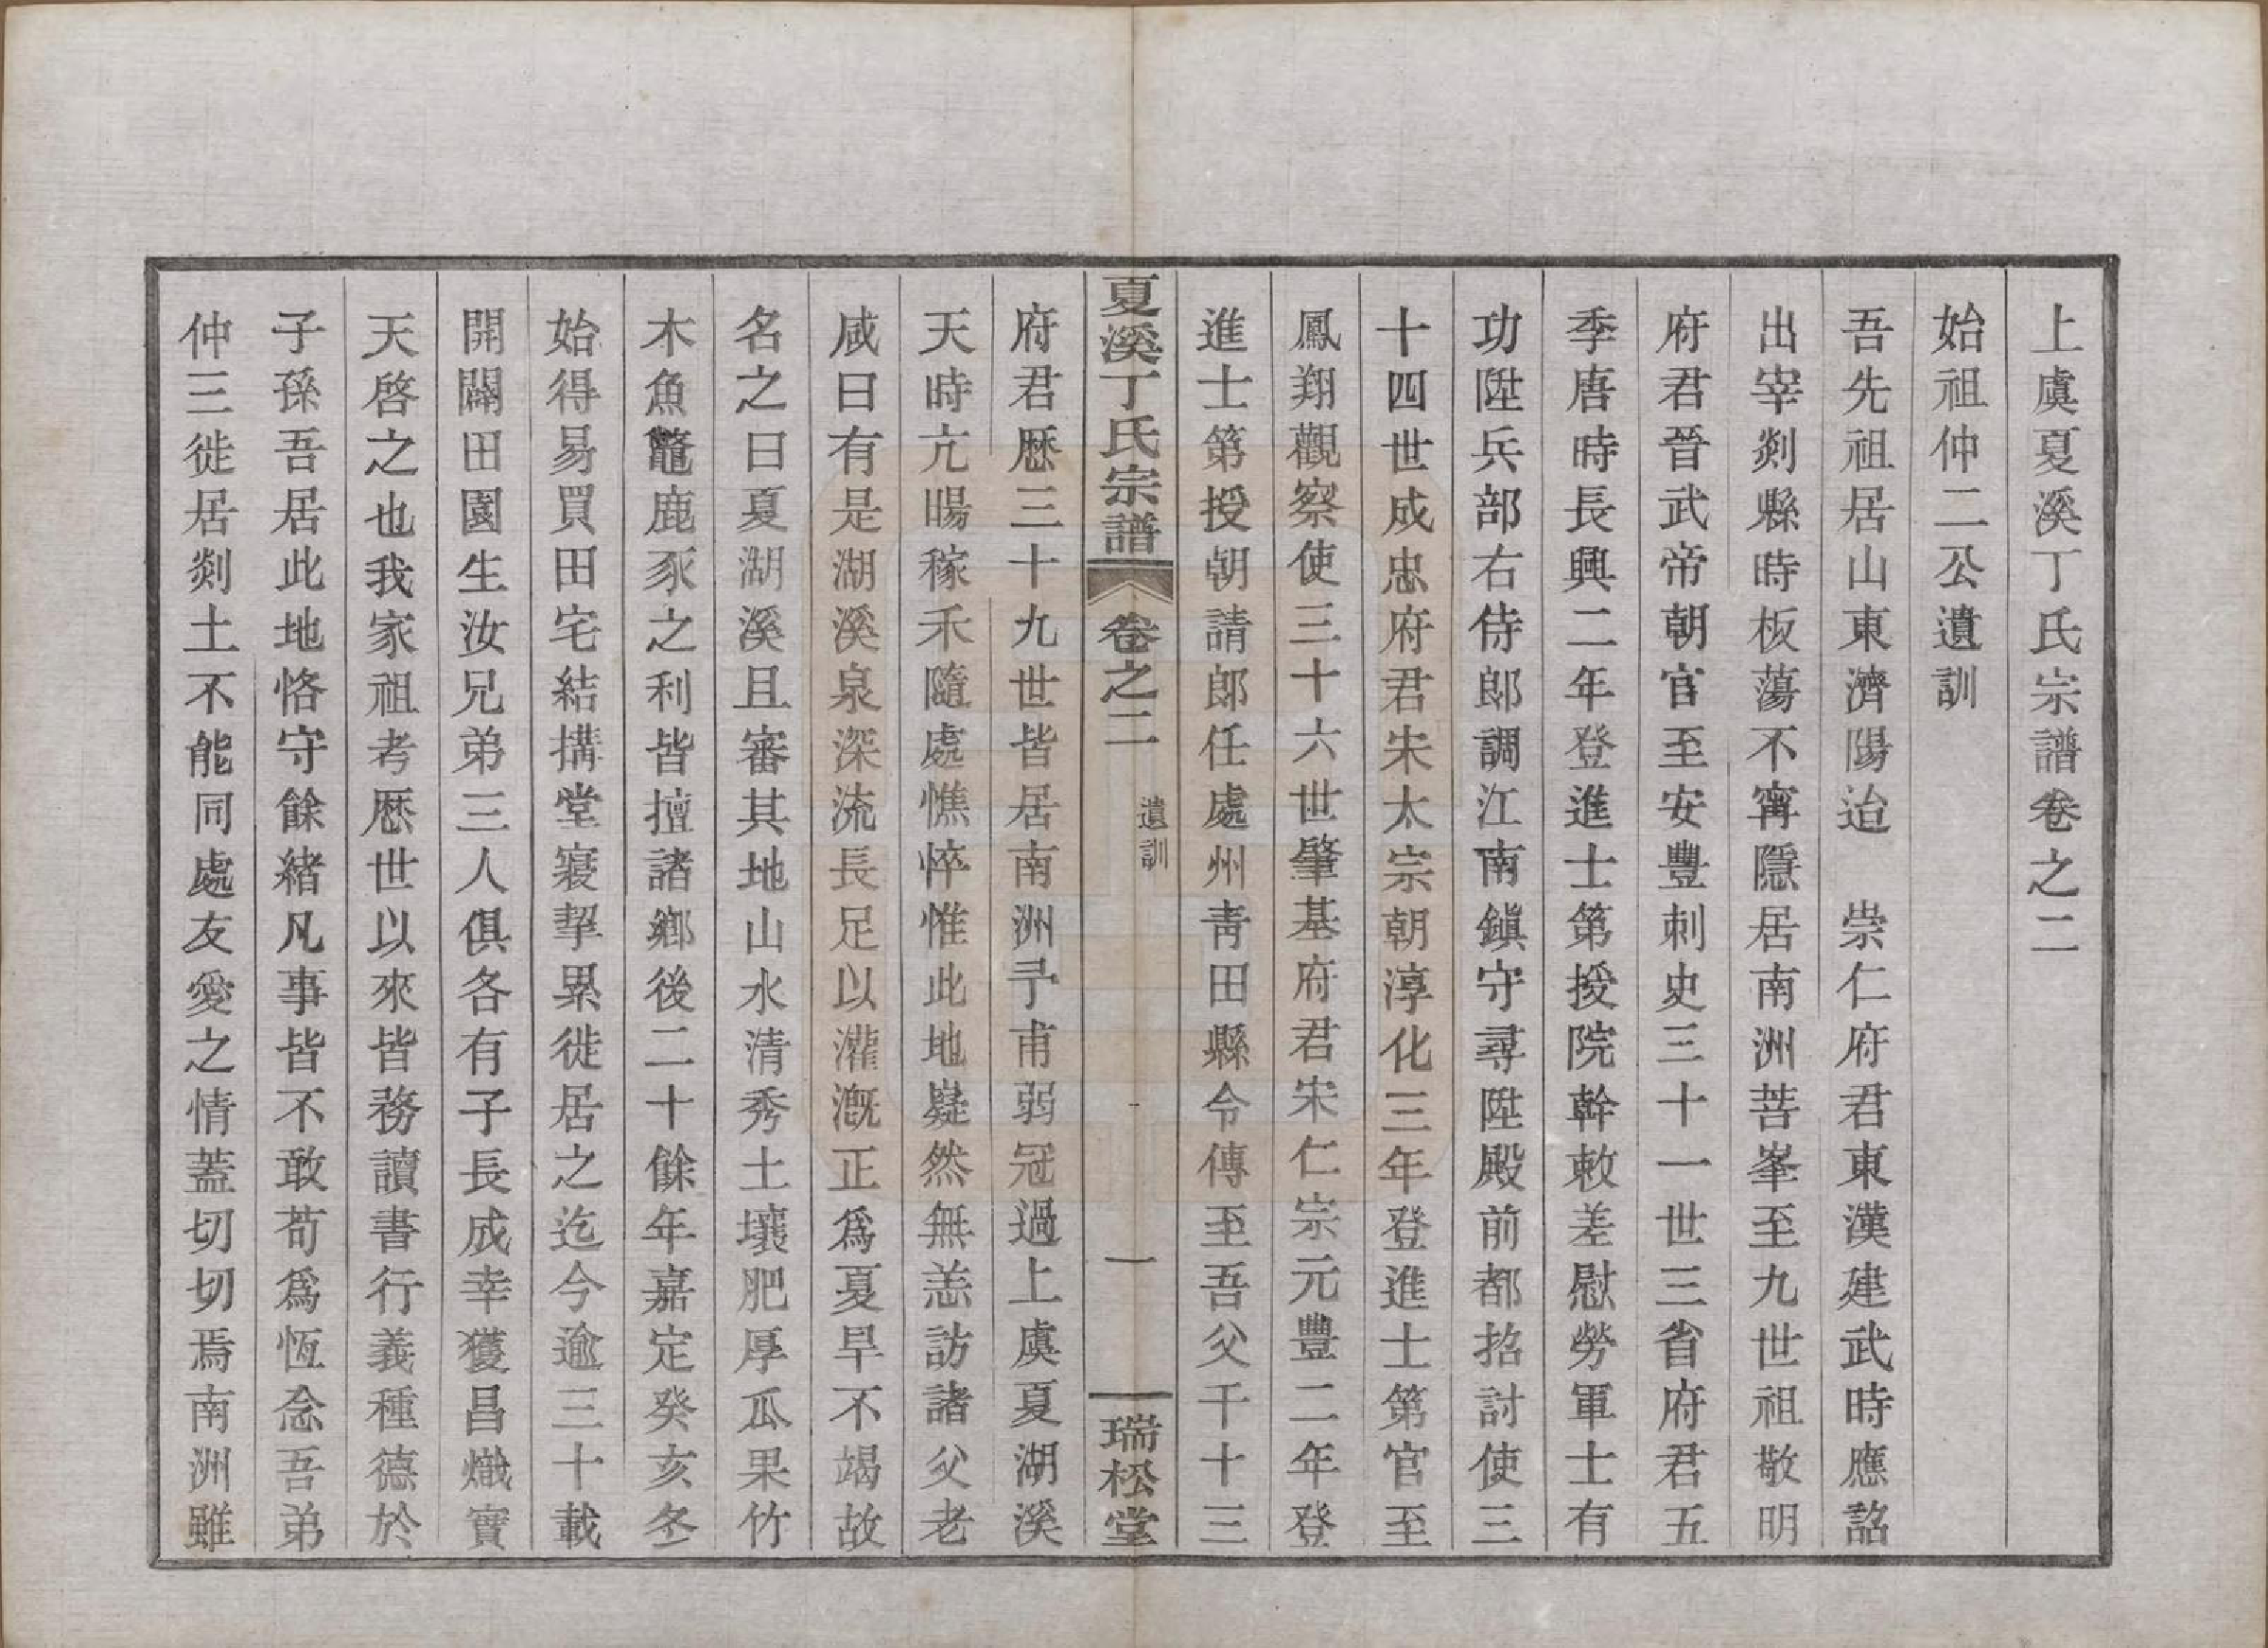 上虞夏溪丁氏宗譜卷之二
始祖仲二公遺訓
吾先祖居山東濟陽迨　崇仁府君東漢建武時應詔
出宰剡縣時板蕩不寧隱居南洲菩峯至九世祖敬明
府君晉武帝朝官至安豐刺史三十一世三省府君五
季唐時長興二年登進士第授院幹敕差慰勞軍士有
功陞兵部右侍郎調江南鎮守尋陞殿前都招討使三
十四世成忠府君宋太宗朝淳化三年登進士第官至
鳳翔觀察使三十六世肇基府君宋仁宗元豐二年登
進士第授朝請郎任處州靑田縣令傳至吾父千十三
夏溪丁氏宗譜　卷之二　遺訓　一　瑞松堂
府君歷三十九世皆居南洲予甫弱冠過上虞夏湖溪
天時亢暘稼禾隨處憔悴惟此地嶷然無恙訪諸父老
咸曰有是湖溪泉深流長足以灌漑正爲夏旱不竭故
名之曰夏湖溪且審其地山水清秀土壤肥厚瓜果竹
木魚鼈鹿豕之利皆擅諸鄉後二十餘年嘉定癸亥冬
始得易買田宅結搆堂寢挈累徙居之迄今逾三十載
開闢田園生汝兄弟三人俱各有子長成幸獲昌熾實
天啓之也我家祖考歷世以來皆務讀書行義種德於
子孫吾居此地恪守餘緒凡事皆不敢苟爲恆念吾弟
仲三徙居剡土不能同處友愛之情蓋切切焉南洲雖